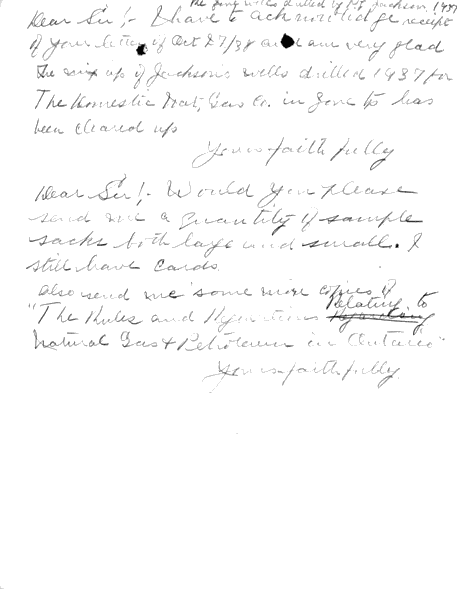 the
wells drilled by
Jackson, 1937
Dear Sir!- I have to acknowledge receipt
of your letter of Oct 27/38 and am very glad
the mix up of Jacksons wells drilled 1937 for
The Domestic Nat, Gas Co. in has
been cleared up
Yours faithfully
Dear Sir!- Would you please
send me a quantity of sample
sacks both large and small. I
still have cards.
also send me some more copies of
"The Rules and Relating to
Natural Gas & Petroleum in Ontario"
Yours faithfully.